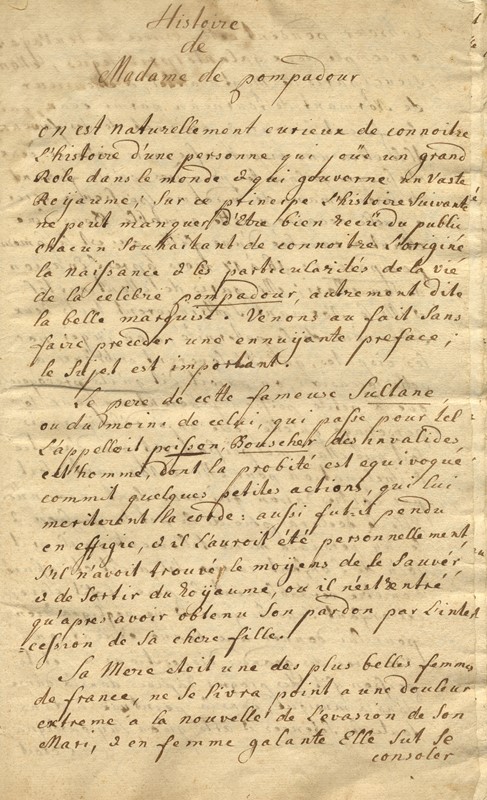 Histoire
de
Madame de pompadour
on est naturellement curieux de connoitre
L'histoire d'une personne qui joüe un grand
Role dans le monde & qui gouverne un Vaste
Royaume; Sur ce principe L'histoire Suivante
ne peut manquer d'Etre bien recüe du public
chacun Souhaitant de connoitre L'origine
la Naissance & les particularités de la vie
de la celebre pompadour, autrement dite
la belle marquise. Venons au fait Sans
faire preceder une ennuyante preface;
le Sujet est important.
Le pere de cette fameuse Sultane
ou du moins de celui, qui passe pour tel
L'appelloit poisson, Bouscher des invalides
cet homme, dont la probité est equivoque
commit quelques petites actions, qui lui
meriterent la corde: aussi fut-il pendu
en effigie, & il L'auroit été personnellement
S'il n'avoit trouvé le moyens de le Sauver
& de Sortir du Royaume, ou il n'est rentré
qu'apres avoir obtenu Son pardon par L'inter
=cession de Sa chere fille.
Sa Mere etoit une des plus belles femmes
de france, ne Se livra point a une douleur
extreme a la nouvelle de L'evasion de Son
Mari, & en femme galante Elle Sut Se
consoler